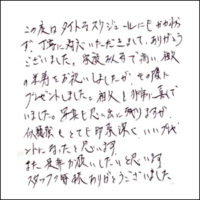 この度はタイトなスケジュールにもかかわら
ず、丁寧に対応いただきまして、ありがとう
ございました。家族みんなで祖父
の米寿をお祝いしましたが、その際に
プレゼントしました。祖父も非常に喜んで
いました。写真も思い出に残りますが、
似顔絵もとても印象深くいいプレゼ
ントになったと思います。
また是非お願いしたいと思います
スタッフの皆様ありがとうございました